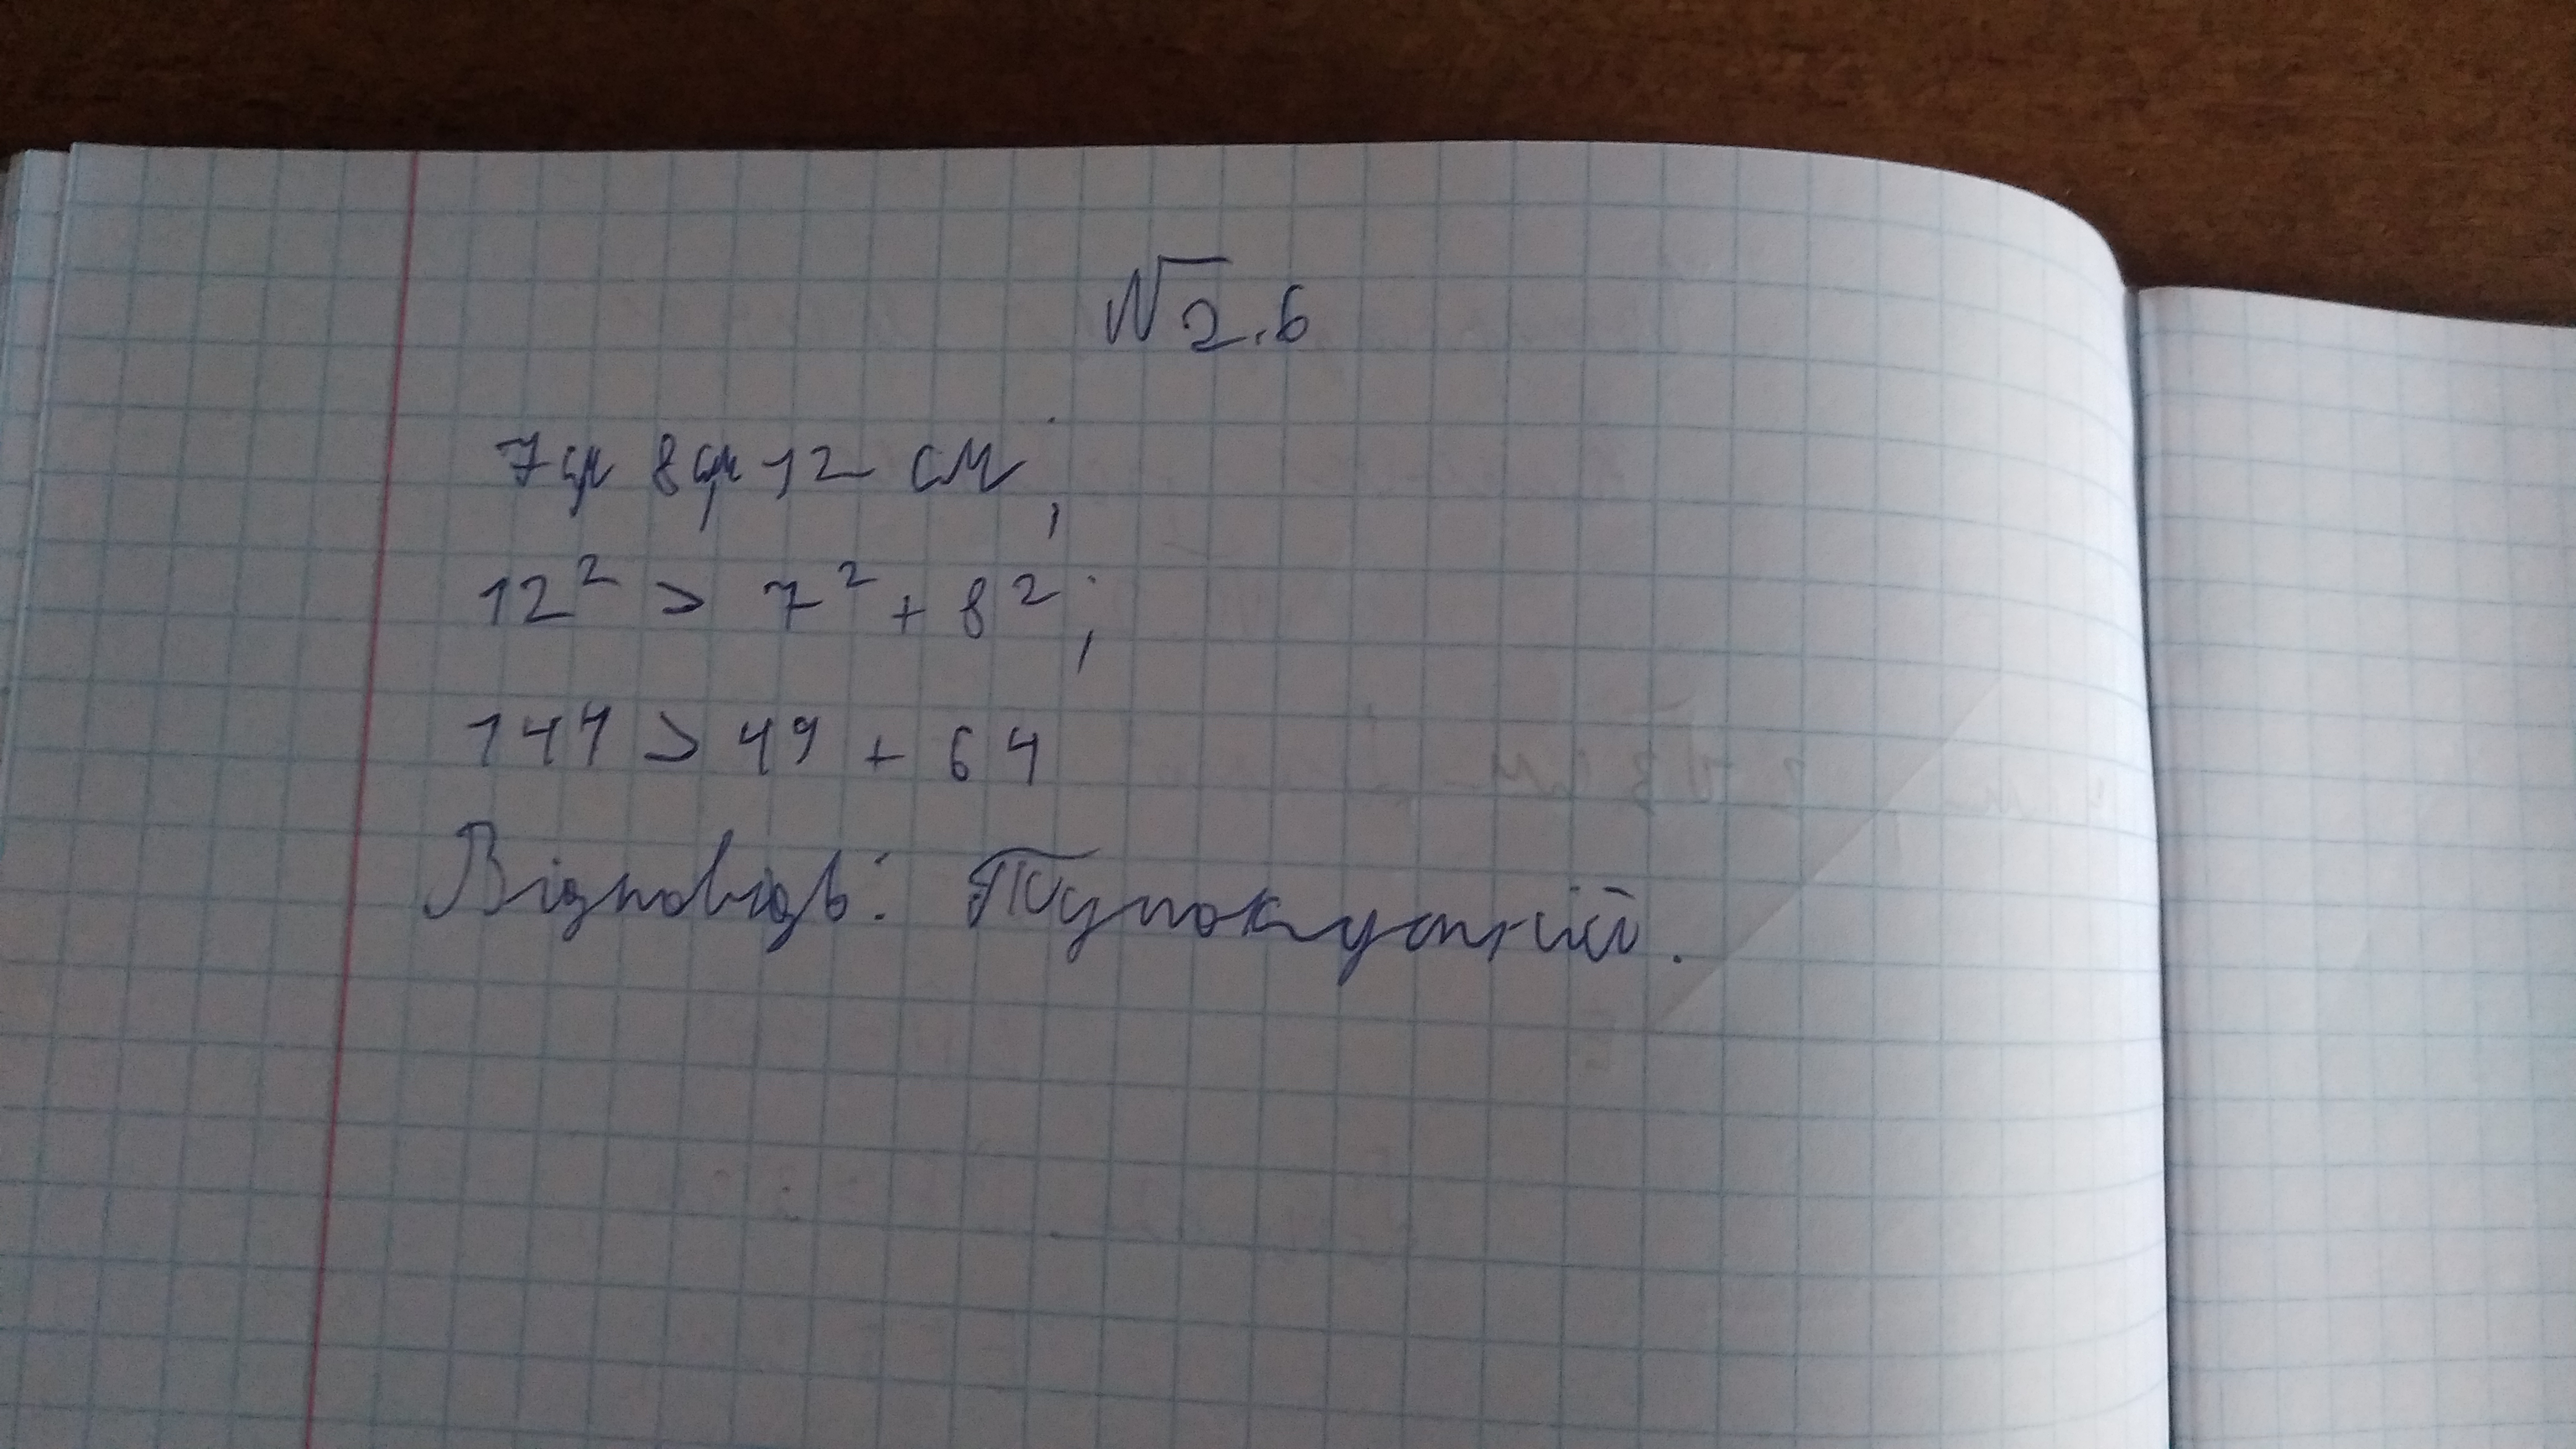 № 2.6
7см, 8см, 12 см;
12² > 7² + 8²;
144 > 49 + 64
Відповідь: Тупокутний.